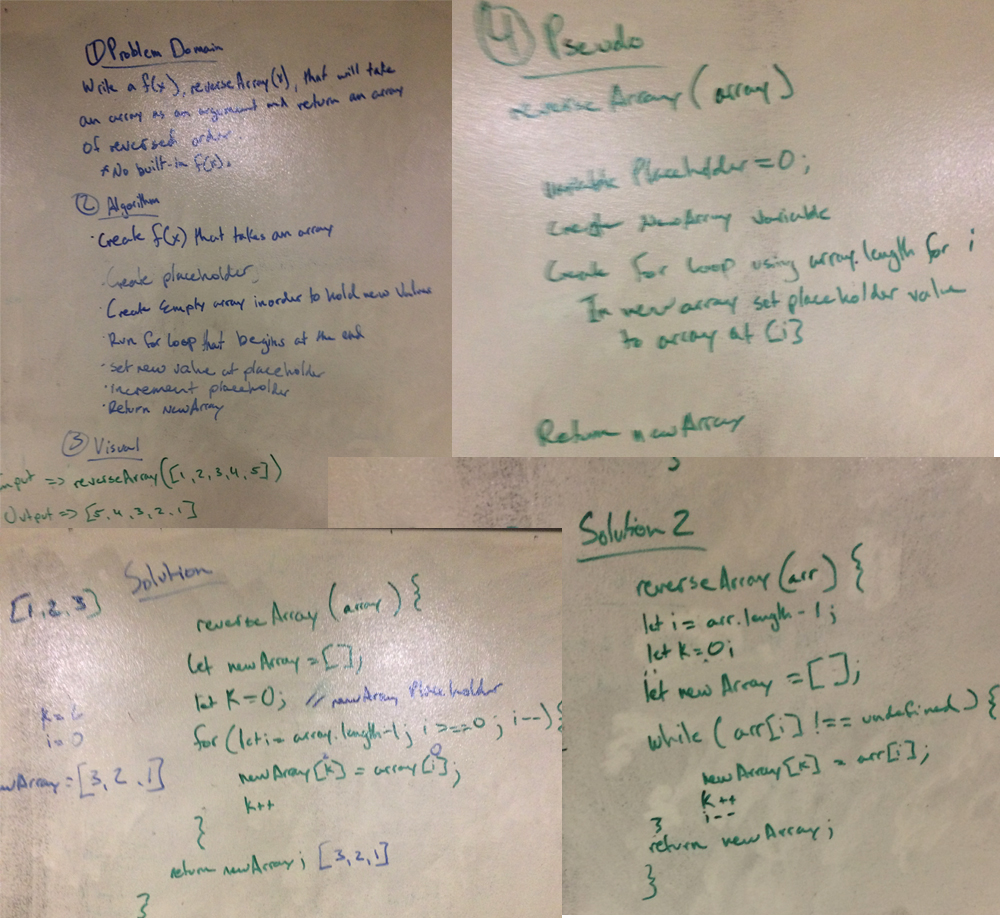 ① Problem Domain
Write a f(x), reverseArray(x), that will take
an array as an argument and return an array
of reversed order.
*No built-in f(x).
② Algorithm
·Create f(x) that takes an array
·Create placeholder
·Create Empty array inorder to hold new values
·Run for loop that begins at the end
·set new value at placeholder
·increment placeholder
·Return newArray
③ Visual
nput => reverseArray([1,2,3,4,5])
Output => [5,4,3,2,1]
④ Pseudo
reverse Array (array)
variable Placeholder = 0;
Create NewArray variable
Create for loop using array.length for i
In new array set placeholder value
to array at [i]
Return newArray
Solution
[1,2,3]
reverseArray (array) {
let newArray = [];
let K=0; // newArray Placeholder
k=
i=0
for (let i = array.length-1; i >==0; i--) {
newArray[k] = array[i];
0
wArray = [3,2,1]
k++
}
return newArray; [3,2,1]
}
Solution 2
reverseArray (arr) {
let i = arr.length -1;
let k=0;
let newArray = [];
while (arr[i] !== undefined) {
newArray[k] = arr[i];
k++
i--
}
return newArray;
}